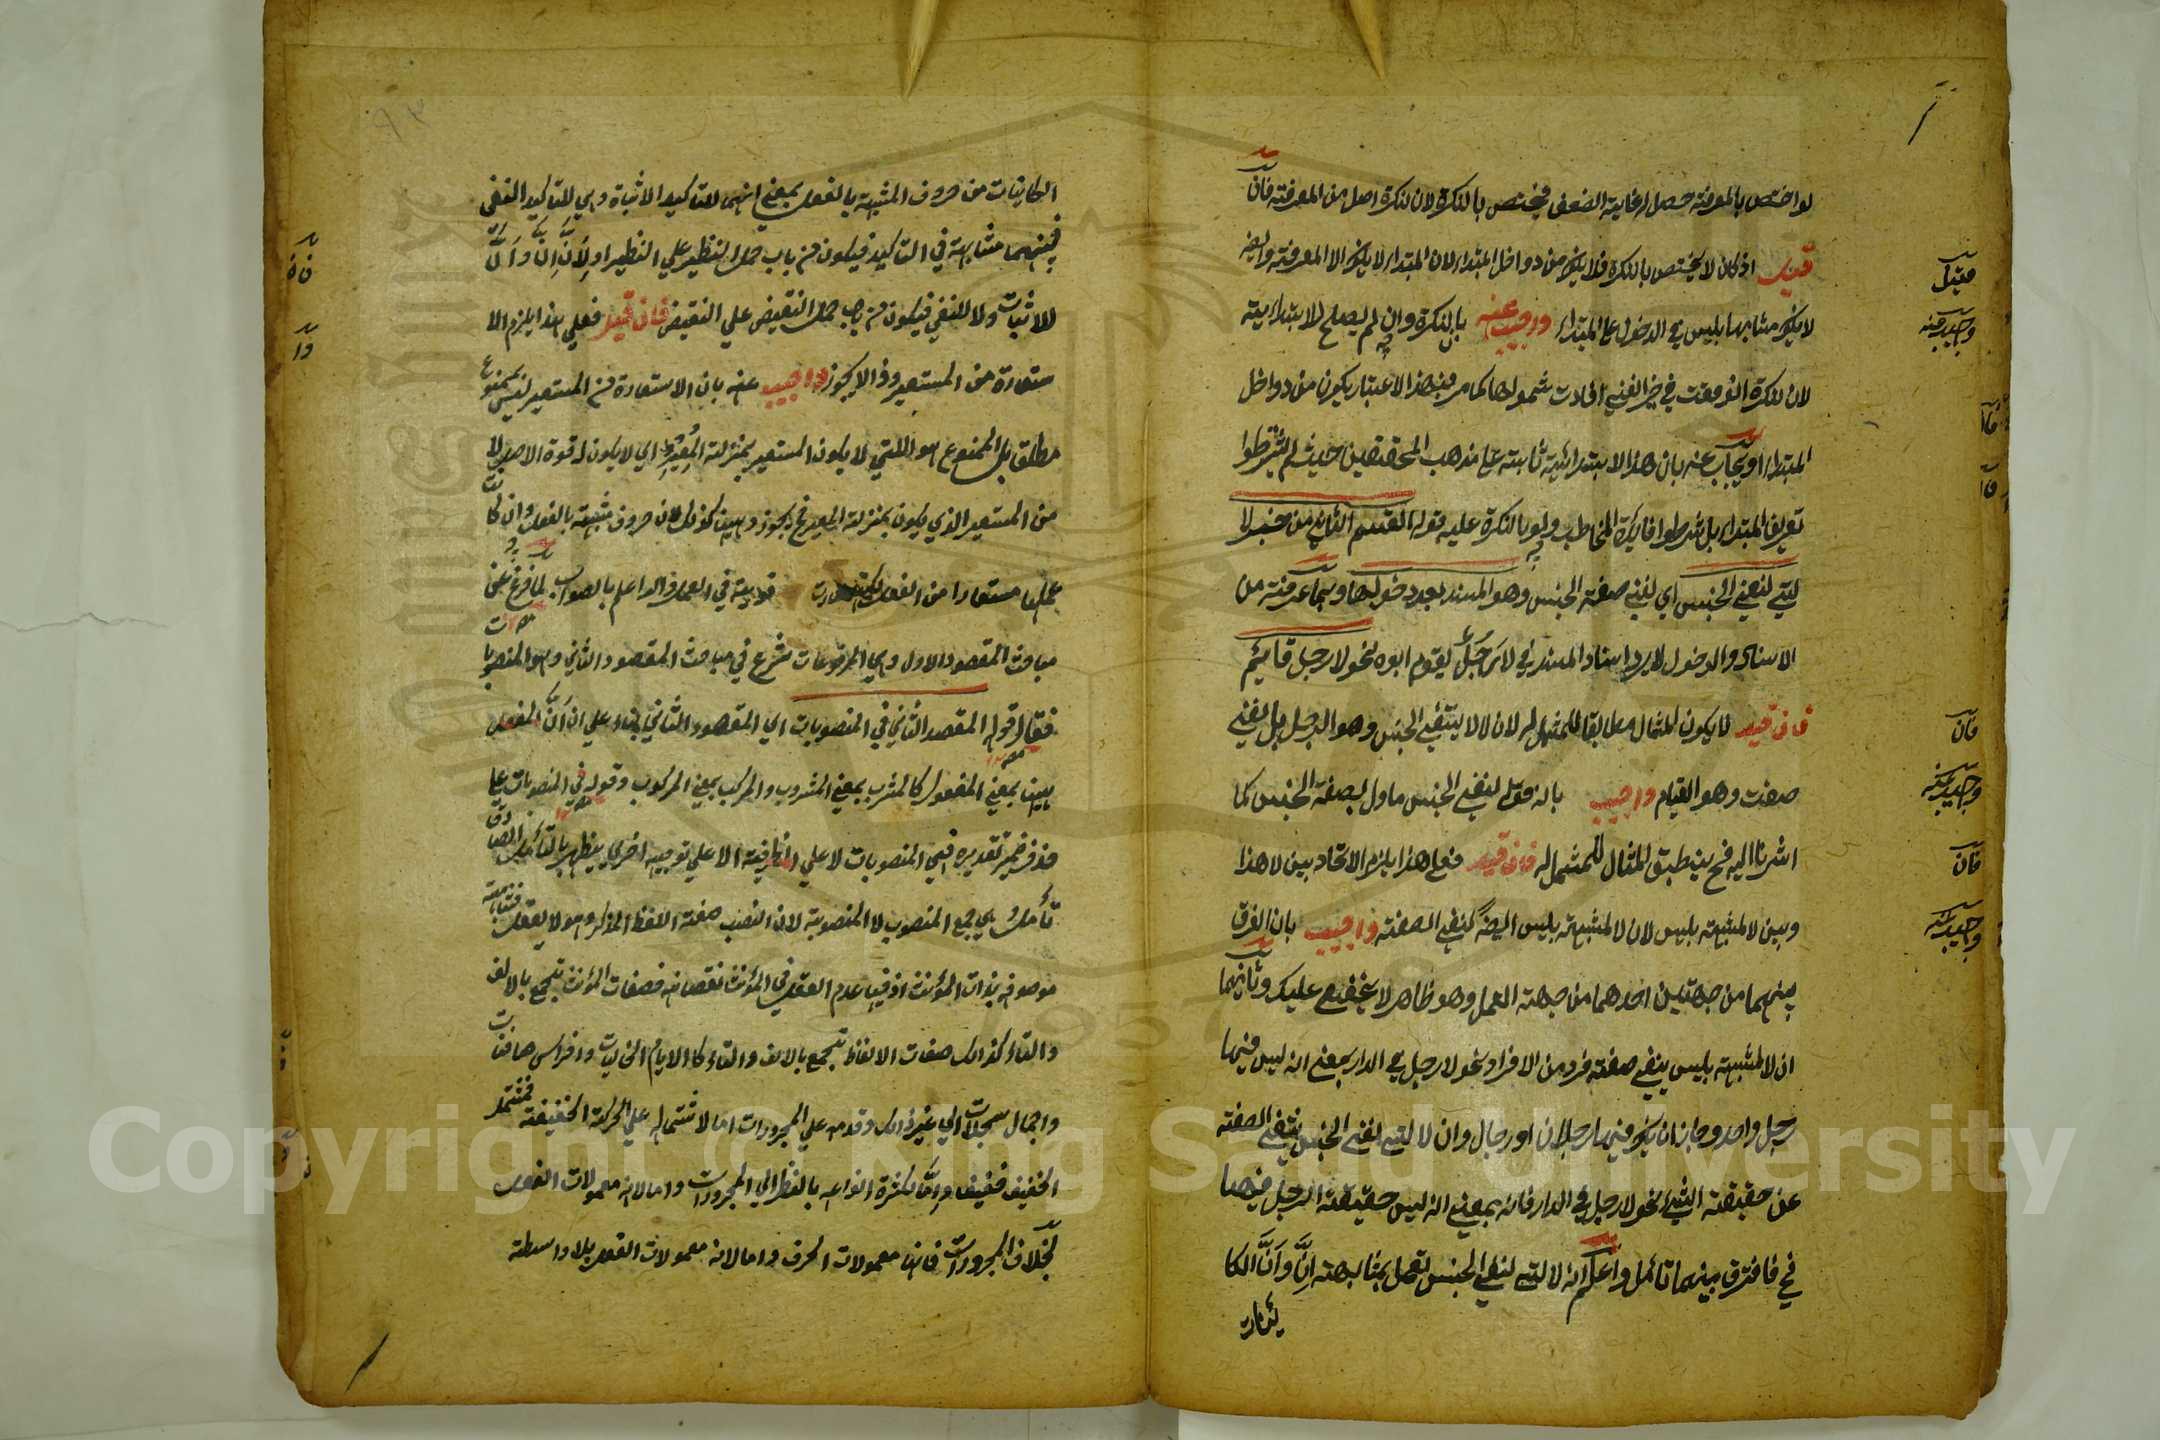 لو اختص بالمعرفة حصل له غاية الضعف فيختص بالنكرة لان النكرة اصل من المعرفة فان
قيل اذ كان لا يختص بالنكرة فلا يكون من دواخل المبتداء لان المبتداء لا يكون الا المعرفة وايضا
لا يكون مشابها بليس في الدخول على المبتداء واجيب عنه بان النكرة وان لم يصلح للابتدائية
لان النكرة اذ وقعت في حيز النفي افادت شمولها كما مر فبهذا الاعتبار يكون من دواخل
المبتداء او يجاب عنه بان هذا الابتدائية ثابتة على مذهب المحققين حيث لم يشترطوا
تعريف المبتداء بل شرطوا فائدة المخاطب ولو بالنكرة عليه قوله القسم الثاني من خبر لا
التي لنفي الجنس اي لنفي صفة الجنس وهو المسند بعد دخولها وبما عرفته من
الاسناد والدخول لا يرد اسناد المسند في لا رجل يقوم ابوه نحو لا رجل قائم
فان قيل لا يكون المثال مطابقا للممثل له لان لا لا ينتفي الجنس وهو الرجل بل ينفي
صفته وهو القيام واجيب بانه قوله لنفي الجنس ماول بصفة الجنس كما
اشرنا اليه فح ينطبق المثال للممثل له فان قيل فعلى هذا يلزم الاتحاد بين لا هذا
وبين لا المشبهة بليس لان لا المشبهة بليس ايضا لنفي الصفة واجيب بان الفرق
بينهما من جهتين احدهما من جهة العمل وهو ظاهر لا يخفى عليك وثانيهما
ان لا المشبهة بليس ينفي صفة فرد من الافراد نحو لا رجل في الدار بمعنى انه ليس فيها
رجل واحد وجاز ان يكون فيها رجلان او رجال وان لا التي لنفي الجنس ينتفي الصفة
عن حقيقة الشيء نحو لا رجل في الدار فانه بمعنى انه ليس حقيقة الرجل فيها
فح فافترق بينهما تأمل واعلم انه لا التي لنفي الجنس تعمل بمشابهة إنَّ وأنَّ الكا
ئنات
قيل
واجيب عنه
فان
واجيب عنه
فان
واجيب
الكائنات من حروف المشبهة بالفعل بمعنى انهما للتاكيد الاثبات وهي للتاكيد النفي
فبينهما مشابهة في التاكيد فيكون من باب حمل النظير على النظير او لأنَّ إنَّ وأنَّ
للاثبات ولا للنفي فيكون من حمل النقيض على النقيض فان قيل فعلى هذا يلزم الا
ستعارة من المستعير وذا لا يجوز واجيب عنه بان الاستعارة من المستعير ليس بممنوع
مطلقا بل الممنوع هو اللتي لا يكون المستعير بمنزلة المعير اي لا يكون له قوة الاصل لا
من المستعير الذي يكون بمنزلة المعير فح يجوز وههنا كذلك لان حروف مشبهة بالفعل وان كانت
عملها مستعارا من الفعل لكنه صارت قوية في العمل والله اعلم بالصواب لما فرغ عن
مباحث المقصود الاول وهي المرفوعات شرع في مباحث المقصود الثاني وهو المنصوبات
فقال قوله المقصد الثاني في المنصوبات اي المقصود الثاني بناء على ان المفعل
ههنا بمعنى المفعول كالمشرب بمعنى المشروب والمركب بمعنى المركوب وقوله في المنصوبات على
حذف ضمير تقديره هي المنصوبات لا على الظرفية الا على توجيه اخرى يظهر بالتأمل الصادق
تأمل وهي جمع المنصوب لا المنصوبة لان النصب صفة اللفظ المذكر وهو لا يعقل
موصوفه بذات المؤنث اذ فيها عدم العقل في المؤنث نقصانه فصفات المؤنث تجمع بالالف
والتاء كذلك صفات الالفاظ تجمع بالالف والتاء كالايام الخاليات وافراس صافنات
واجمال سجلات الى غير ذلك وقدمه على المجرورات اما لاشتماله على الحركة الخفيفة فمشتمل
الخفيف خفيف وإما لكثرة انواعه بالنظر الى المجرورات واما لانه معمولات الفعل
بخلاف المجرورات فانها معمولات الحرف واما لانه معمولات الفعل بلا واسطة
Copyright © King Saud University
1957